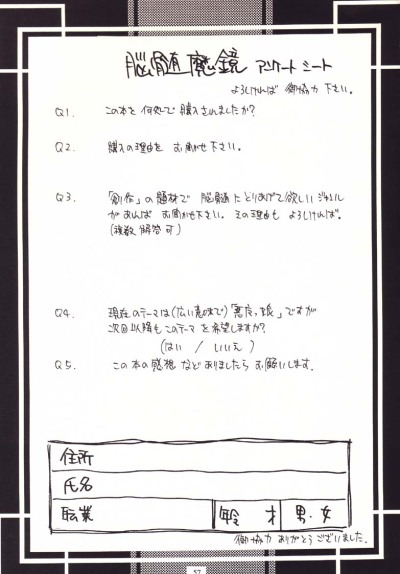 脳髄魔鏡 アンケートシート
よろしければ御協力下さい。
Q1. この本を何処で購入されましたか?
Q2. 購入の理由をお聞かせ下さい。
Q3. 「創作」の題材で脳髄にとりあげて欲しいジャンル
があればお聞かせ下さい。その理由もよろしければ。
(複数解答可)
Q4. 現在のテーマは(広い意味で)「悪たっ娘」ですが
次回以降もこのテーマを希望しますか?
(はい / いいえ)
Q5. この本の感想などありましたらお願いします。
住所
氏名
職業 年令 才 男・女
御協力ありがとうございました。
57